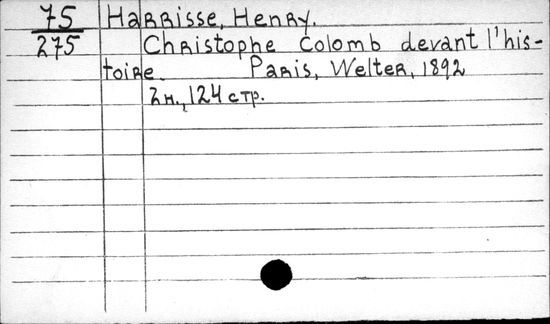 75 Harrisse, Henry.
275 Christophe Colomb devant l'his-
toire. Paris, Welter, 1892
2н., 124 стр.